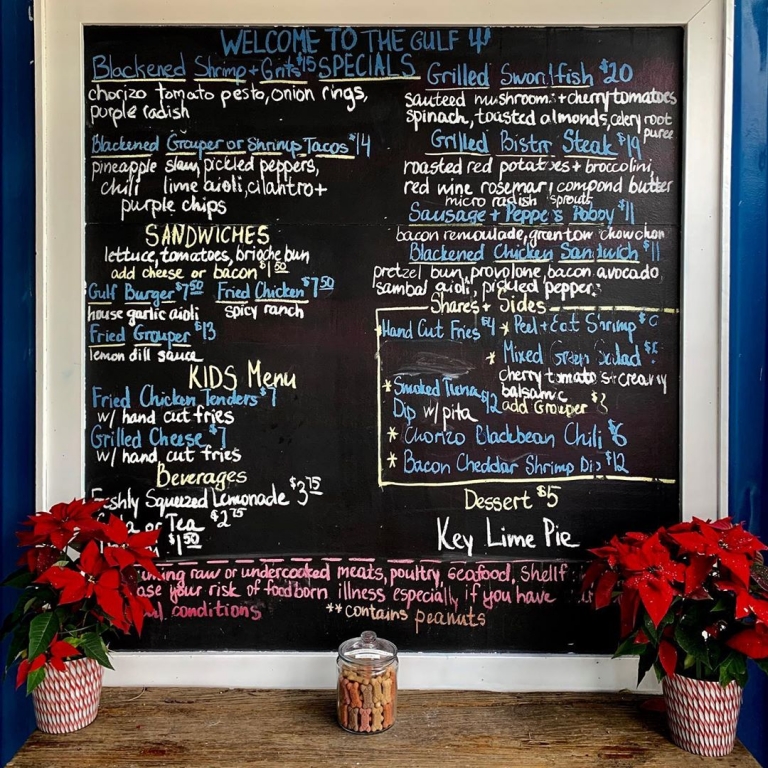 WELCOME TO THE GULF
Blackened Shrimp + Grits $15 SPECIALS
chorizo tomato pesto, onion rings,
purple radish
Blackened Grouper or Shrimp Tacos $14
pineapple slaw, pickled peppers,
chili lime aioli, cilantro +
purple chips
SANDWICHES
lettuce, tomatoes, brioche bun
add cheese or bacon $1.50
Gulf Burger $7.50 Fried Chicken $7.50
house garlic aioli spicy ranch
Fried Grouper $13
lemon dill sauce
KIDS Menu
Fried Chicken Tenders $7
w/ hand cut fries
Grilled Cheese $7
w/ hand cut fries
Beverages
Freshly Squeezed Lemonade $3.75
or Tea $2.75
$1.50
Grilled Swordfish $20
sauteed mushroom + cherry tomatoes
spinach, toasted almonds, celery root
puree
Grilled Bistr Steak $19
roasted red potatoes + broccolini,
red wine rosemary compond butter
micro radish sprouts
Sausage + Peppers Poboy $11
bacon remoulade, green tom chowchow
Blackened Chicken Sandwich $11
pretzel bun, provolone, bacon avocado,
sambal aioli, pickled pepper
Shares + Sides
Hand Cut Fries $4 * Peel + Eat Shrimp
* Mixed Green Salad
cherry tomatoes + creamy
balsamic
add Grouper
* Smoked Tuna
Dip w/ pita $12
* Chorizo Blackbean Chili $6
* Bacon Cheddar Shrimp Dip $12
Dessert $5
Key Lime Pie
raw or undercooked meats, poultry, seafood, shellf
your risk of foodborn illness especially if you have
conditions **contains peanuts